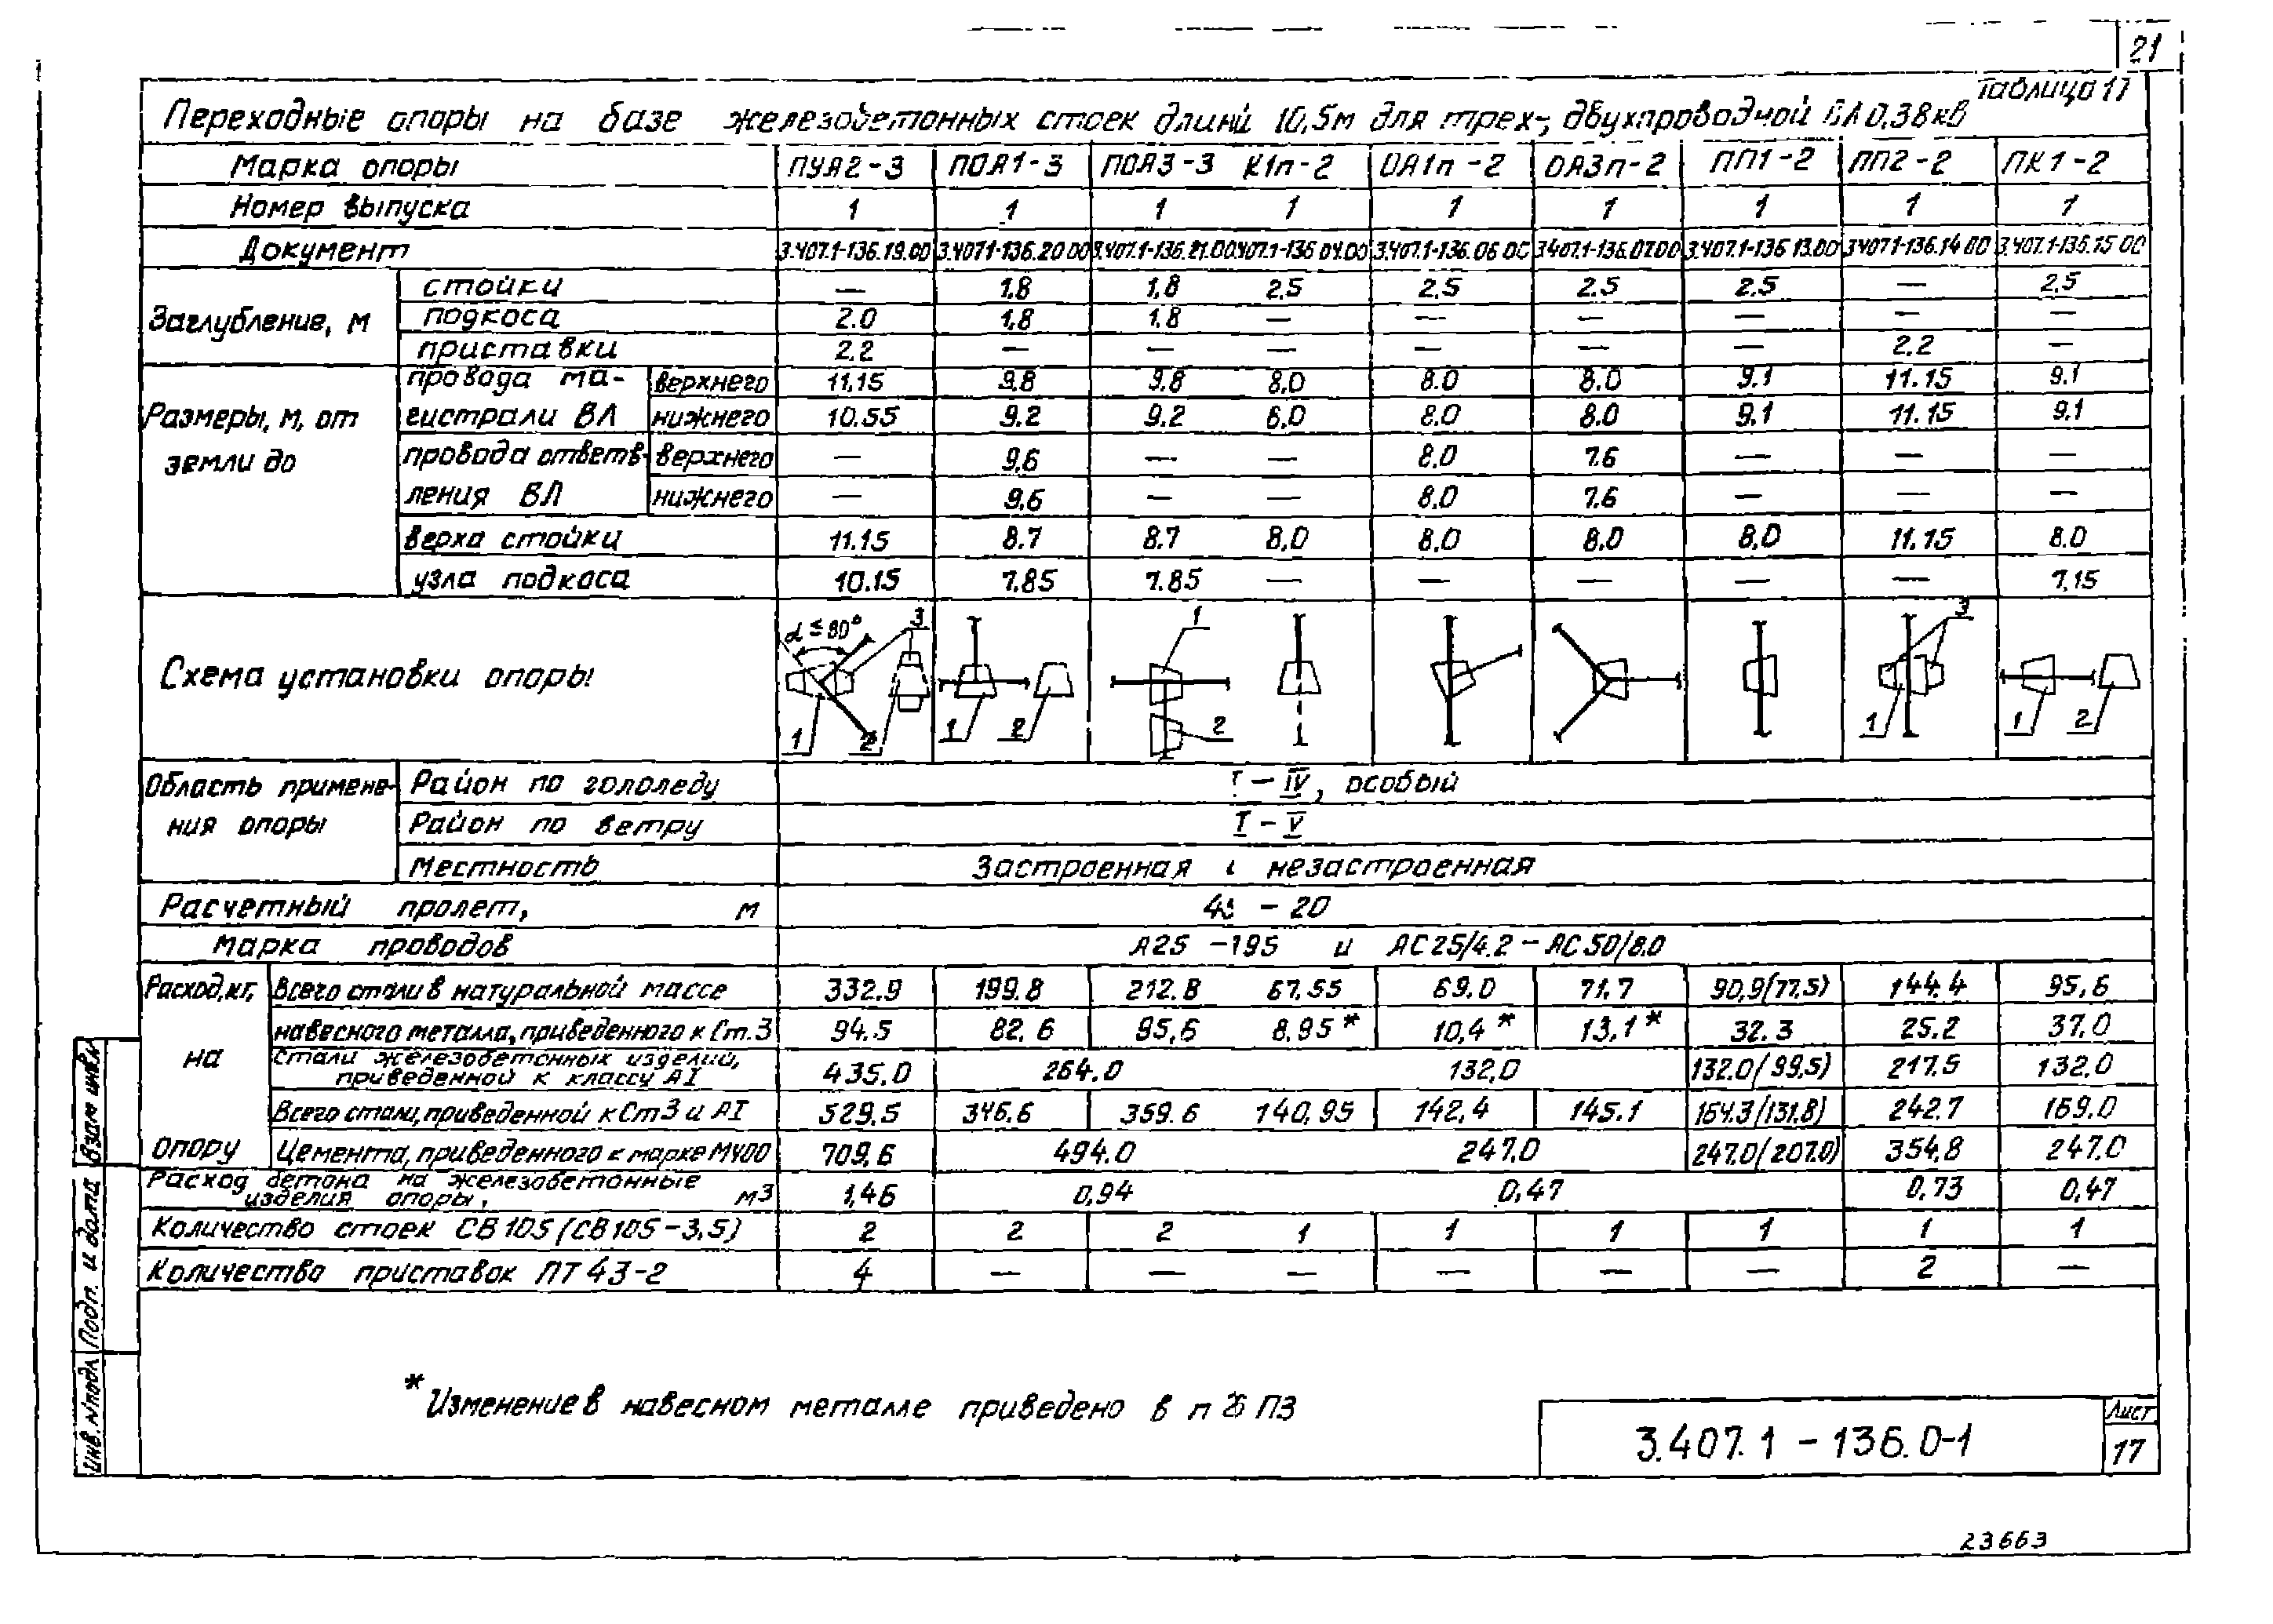 21
Таблица 17
Переходные опоры на базе железобетонных стоек длиной 10,5м для трех-, двухпроводной ВЛ 0,38кв
Марка опоры ПУА2-3 ПОА1-3 ПОА3-3 К1п-2 ОА1п-2 ОА3п-2 ПП1-2 ПП2-2 ПК1-2
Номер выпуска 1 1 1 1 1 1 1 1 1
Документ 3.407.1-136.19.00 3.407.1-136.20.00 3.407.1-136.21.00 3.407.1-136.04.00 3.407.1-136.06.00 3.407.1-136.07.00 3.407.1-136.13.00 3.407.1-136.14.00 3.407.1-136.15.00
Заглубление, м
стойки — 1,8 1,8 2.5 2.5 2.5 2.5 — 2.5
подкоса 2.0 1,8 1.8 — — — — — —
приставки 2.2 — — — — — — 2.2 —
Размеры, м, от земли до
провода магистрали ВЛ
верхнего 11.15 9.8 9.8 8.0 8.0 8.0 9.1 11.15 9.1
нижнего 10.55 9.2 9.2 6.0 8.0 8.0 9.1 11.15 9.1
провода ответвления ВЛ
верхнего — 9.6 — — 8.0 7.6 — — —
нижнего — 9.6 — — 8.0 7.6 — — —
верха стойки 11.15 8.7 8.7 8.0 8.0 8.0 8.0 11.15 8.0
узла подкоса 10.15 7.85 7.85 — — — — — 7.15
Схема установки опоры
3 1 3
1 2 1 2 2 1 1 2
Область применения опоры
Район по гололеду I – IV, особый
Район по ветру I – V
Местность Застроенная и незастроенная
Расчетный пролет, м – 20
Марка проводов А25 -195 и АС25/4.2 – АС50/8.0
Расход, кг, на опору
Всего стали в натуральной массе 332.9 199.8 212.8 67.55 69.0 71.7 90,9(77,5) 144.4 95,6
навесного металла, приведенного к Ст.3 94.5 82.6 95,6 8.95* 10,4* 13,1* 32.3 25.2 37.0
Стали железобетонных изделий, приведенной к классу АI 435.0 264.0 132,0 132.0/99,5) 217.5 132,0
Всего стали, приведенной к Ст3 и АI 529.5 346.6 359.6 140,95 142,4 145.1 164.3/131,8) 242.7 169.0
Цемента, приведенного к марке М400 709,6 494.0 247.0 247.0/207.0) 354,8 247.0
Расход бетона на железобетонные изделия опоры, м3 1,46 0,94 0,47 0,73 0,47
Количество стоек СВ105 (СВ105-3,5) 2 2 2 1 1 1 1 1 1
Количество приставок ПТ43-2 4 — — — — — — 2 —
* Изменение в навесном металле приведено в п ПЗ
3.407.1-136.0-1
Лист
17
Инв. N подл
Подп. и дата
Взам инв
23663